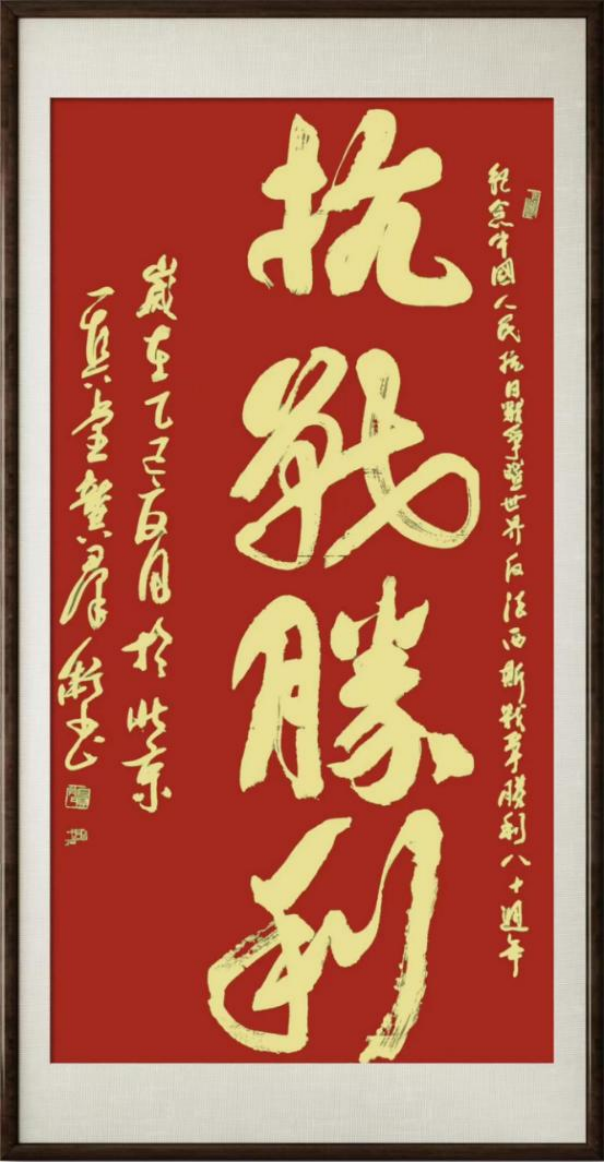 紀念中國人民抗日戰爭暨世界反法西斯戰爭勝利八十週年
抗戰勝利
歲在乙巳夏月於北京
一真堂龔群衡書